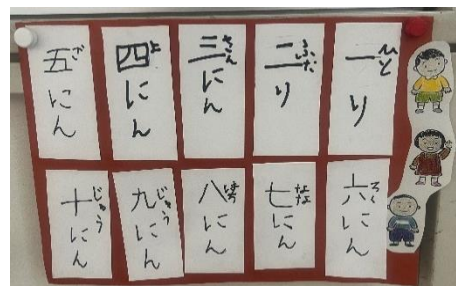 一ひとり
二ふたり
三さんにん
四よにん
五ごにん
六ろくにん
七ななにん
八はちにん
九じゅうにん
十じゅうにん